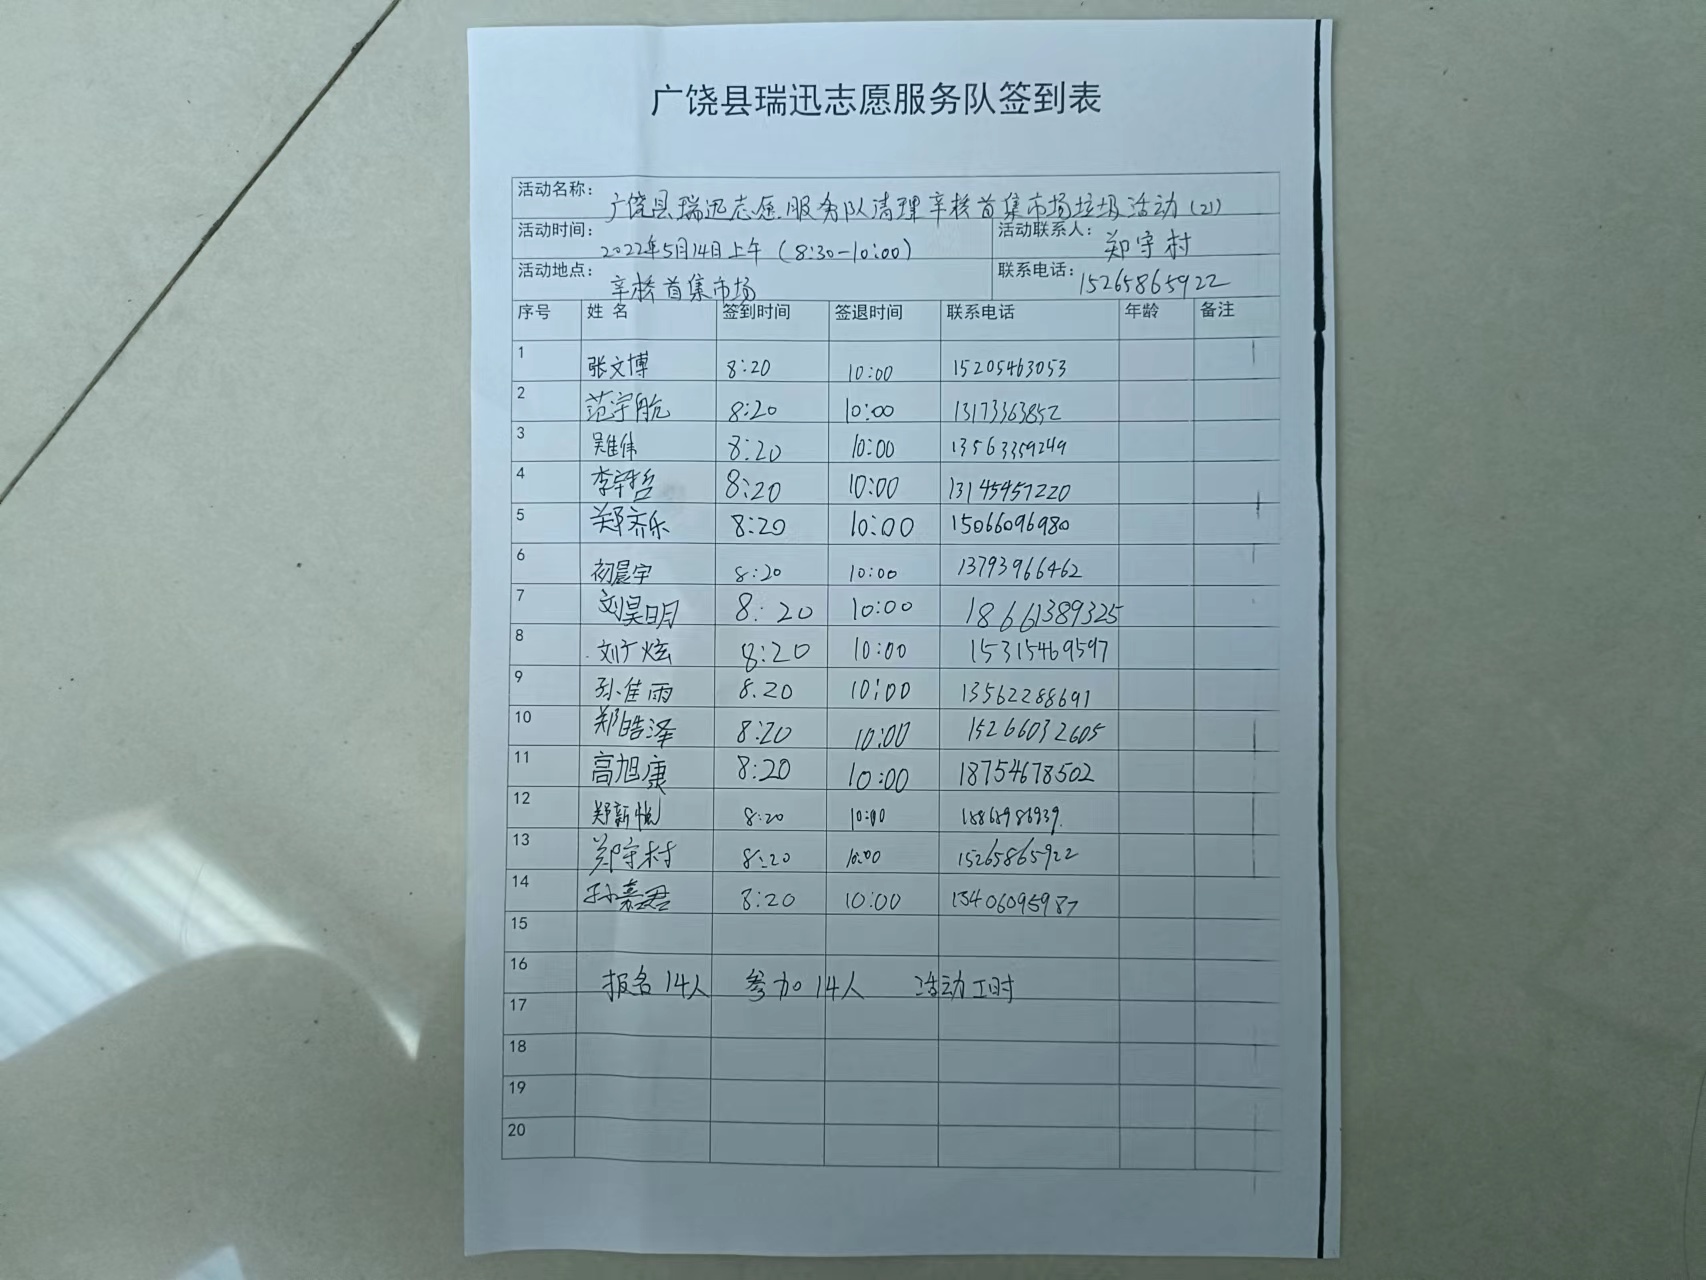 广饶县瑞迅志愿服务队签到表
活动名称： 广饶县瑞迅志愿服务队清理辛桥首集市场垃圾活动（21）
活动时间： 2022年5月14日上午（8:30-10:00） 活动联系人： 郑守村
活动地点： 辛桥首集市场 联系电话： 15265865922
序号 姓名 签到时间 签退时间 联系电话 年龄 备注
1 张文博 8:20 10:00 15205463053
2 范宇航 8:20 10:00 13173363852
3 吴佳伟 8:20 10:00 13563359249
4 李宇哲 8:20 10:00 13145457220
5 郑齐乐 8:20 10:00 15066096980
6 初晨宇 8:20 10:00 13793966462
7 刘昊明 8:20 10:00 18661389325
8 刘广炫 8:20 10:00 15315469597
9 孙佳雨 8.20 10:00 13562288691
10 郑皓泽 8:20 10:00 15266032605
11 高旭康 8:20 10:00 18754678502
12 郑新悦 8:20 10:00
13 郑守村 8:20 10:00 15265865922
14 孙嘉君 8:20 10:00 13406095987
15
16 报名14人 参加14人 活动工时
17
18
19
20